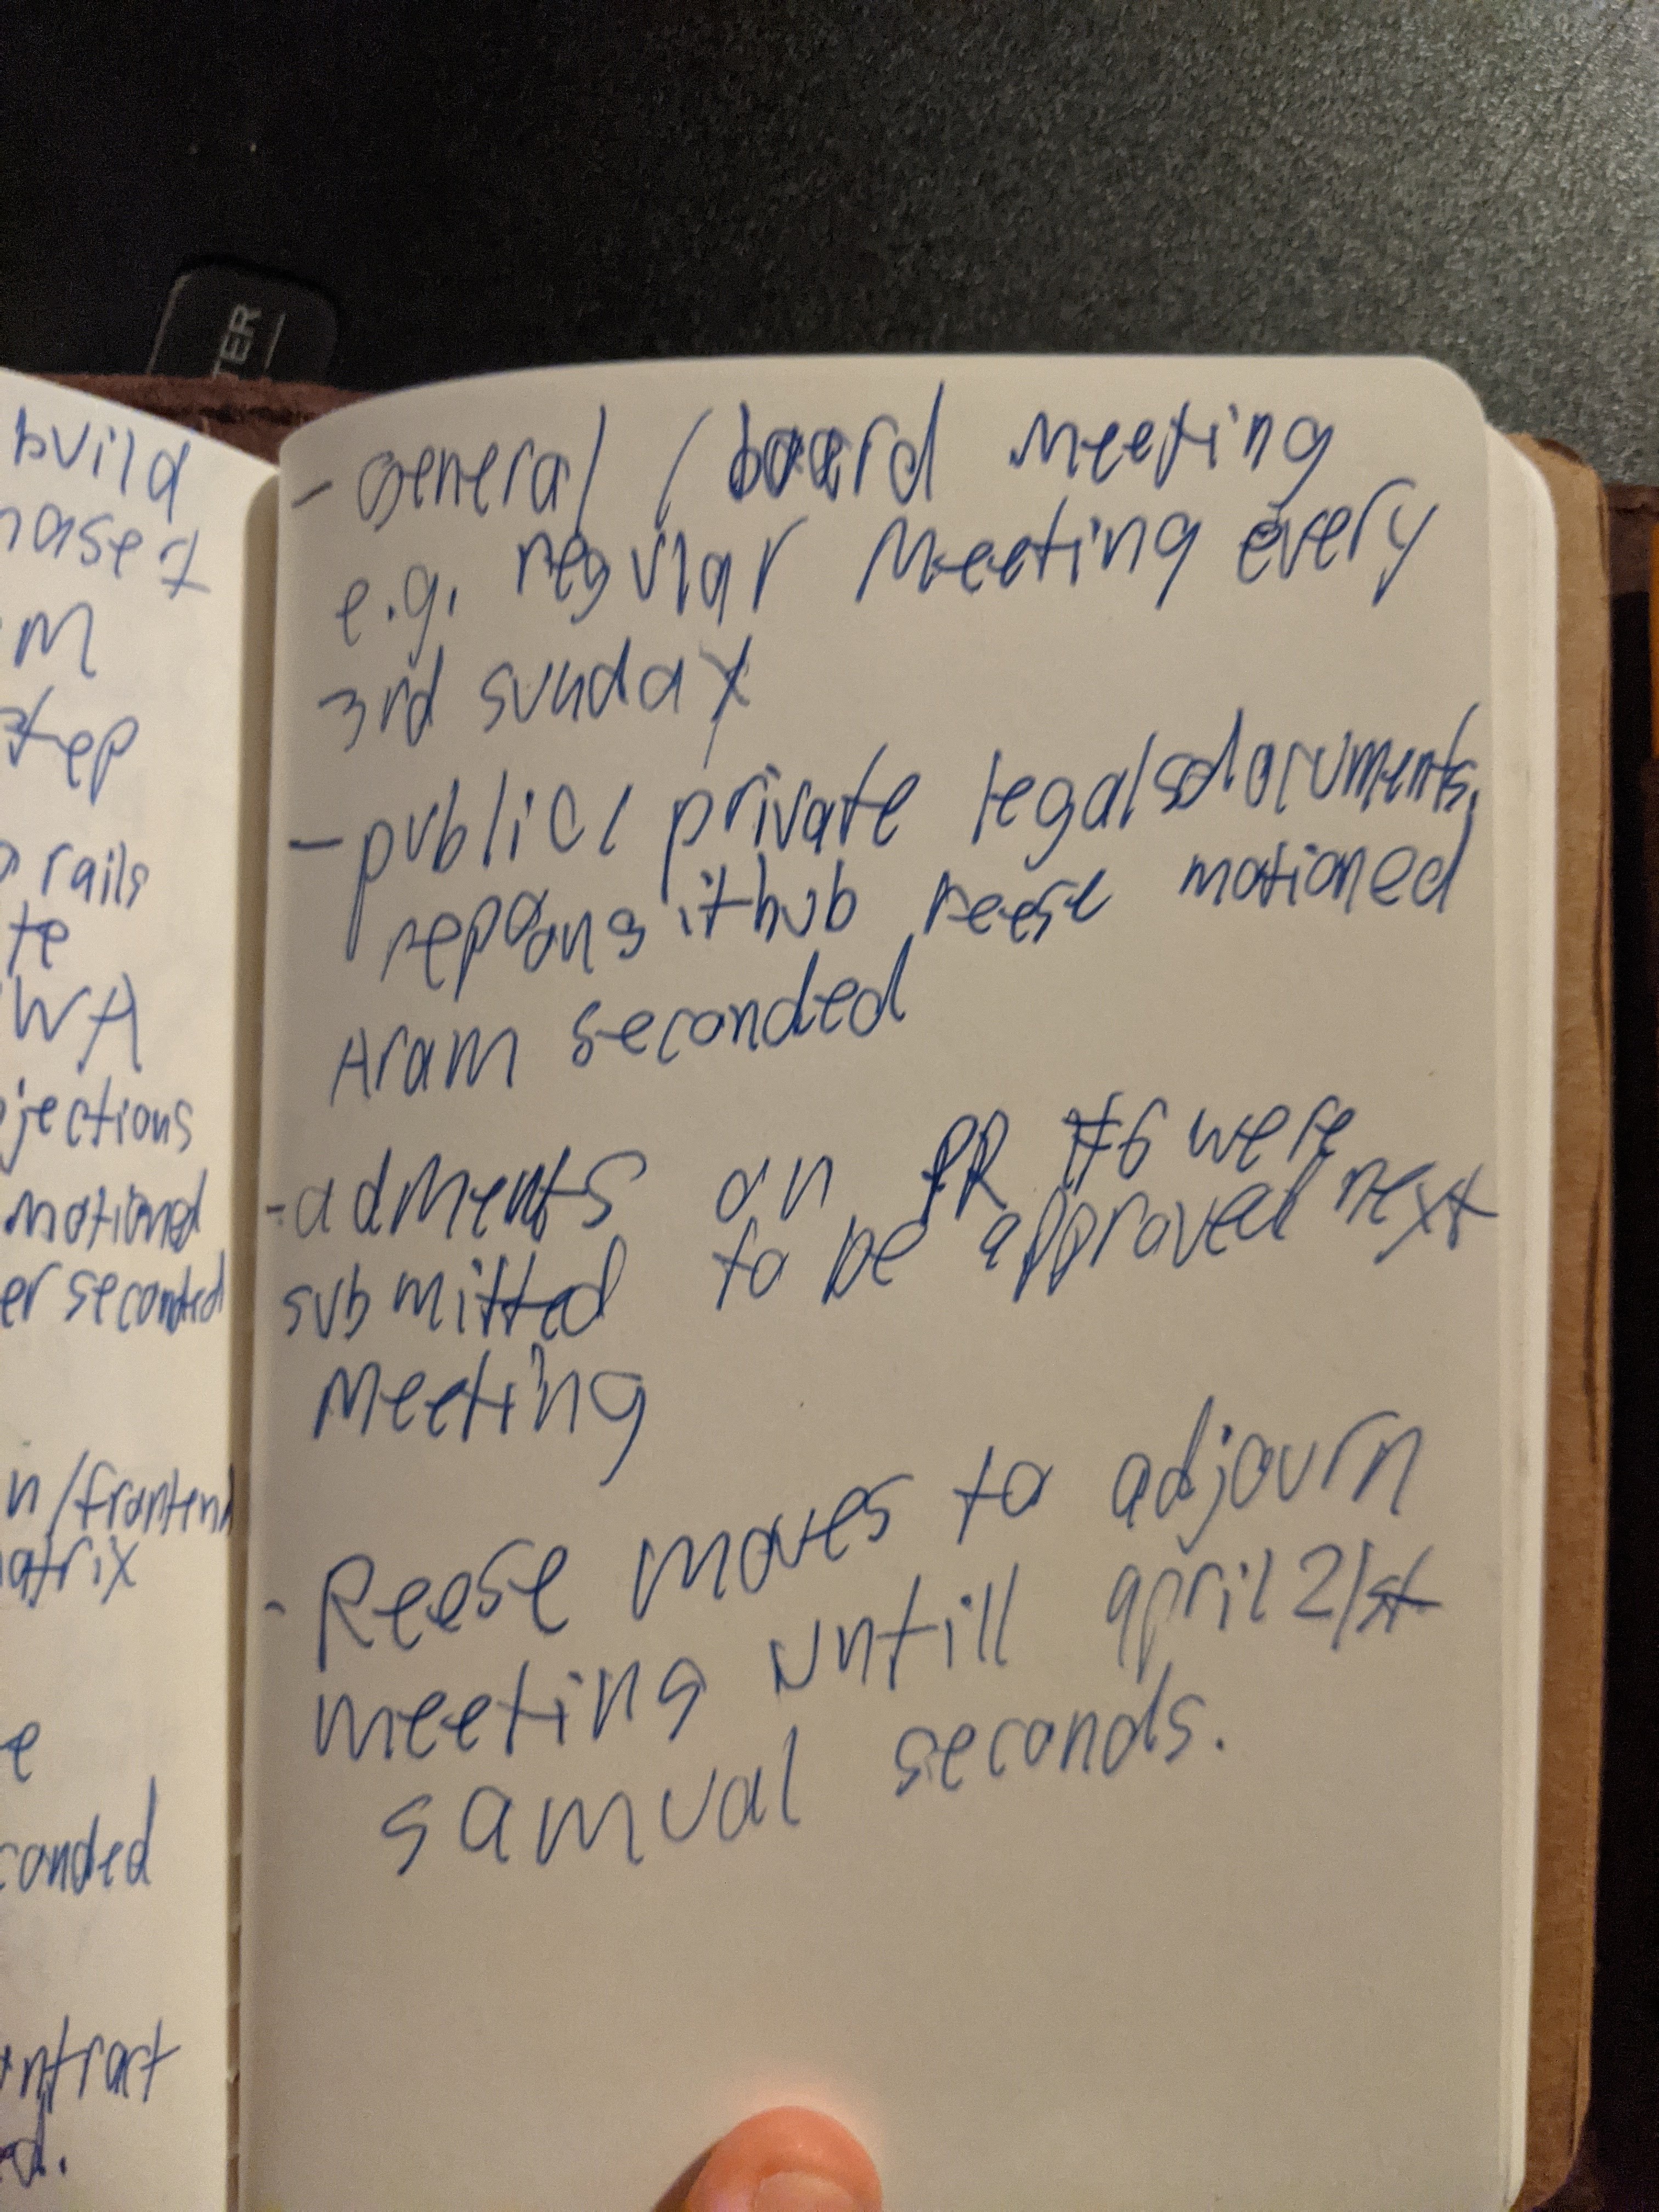 TER
build
hase 1
M
step
rails
te
WA
jections
motioned
er seconded
n/frontend
atrix
e
conded
ntract
ed.
- General / board meeting
e.g. regular meeting every
3rd sunday
- public/private legal documents
repo on github reese motioned
Aram seconded
- adments on PR #6 were
submitted to be approved next
meeting
- Reese moves to adjourn
meeting untill april 21st
samual seconds.